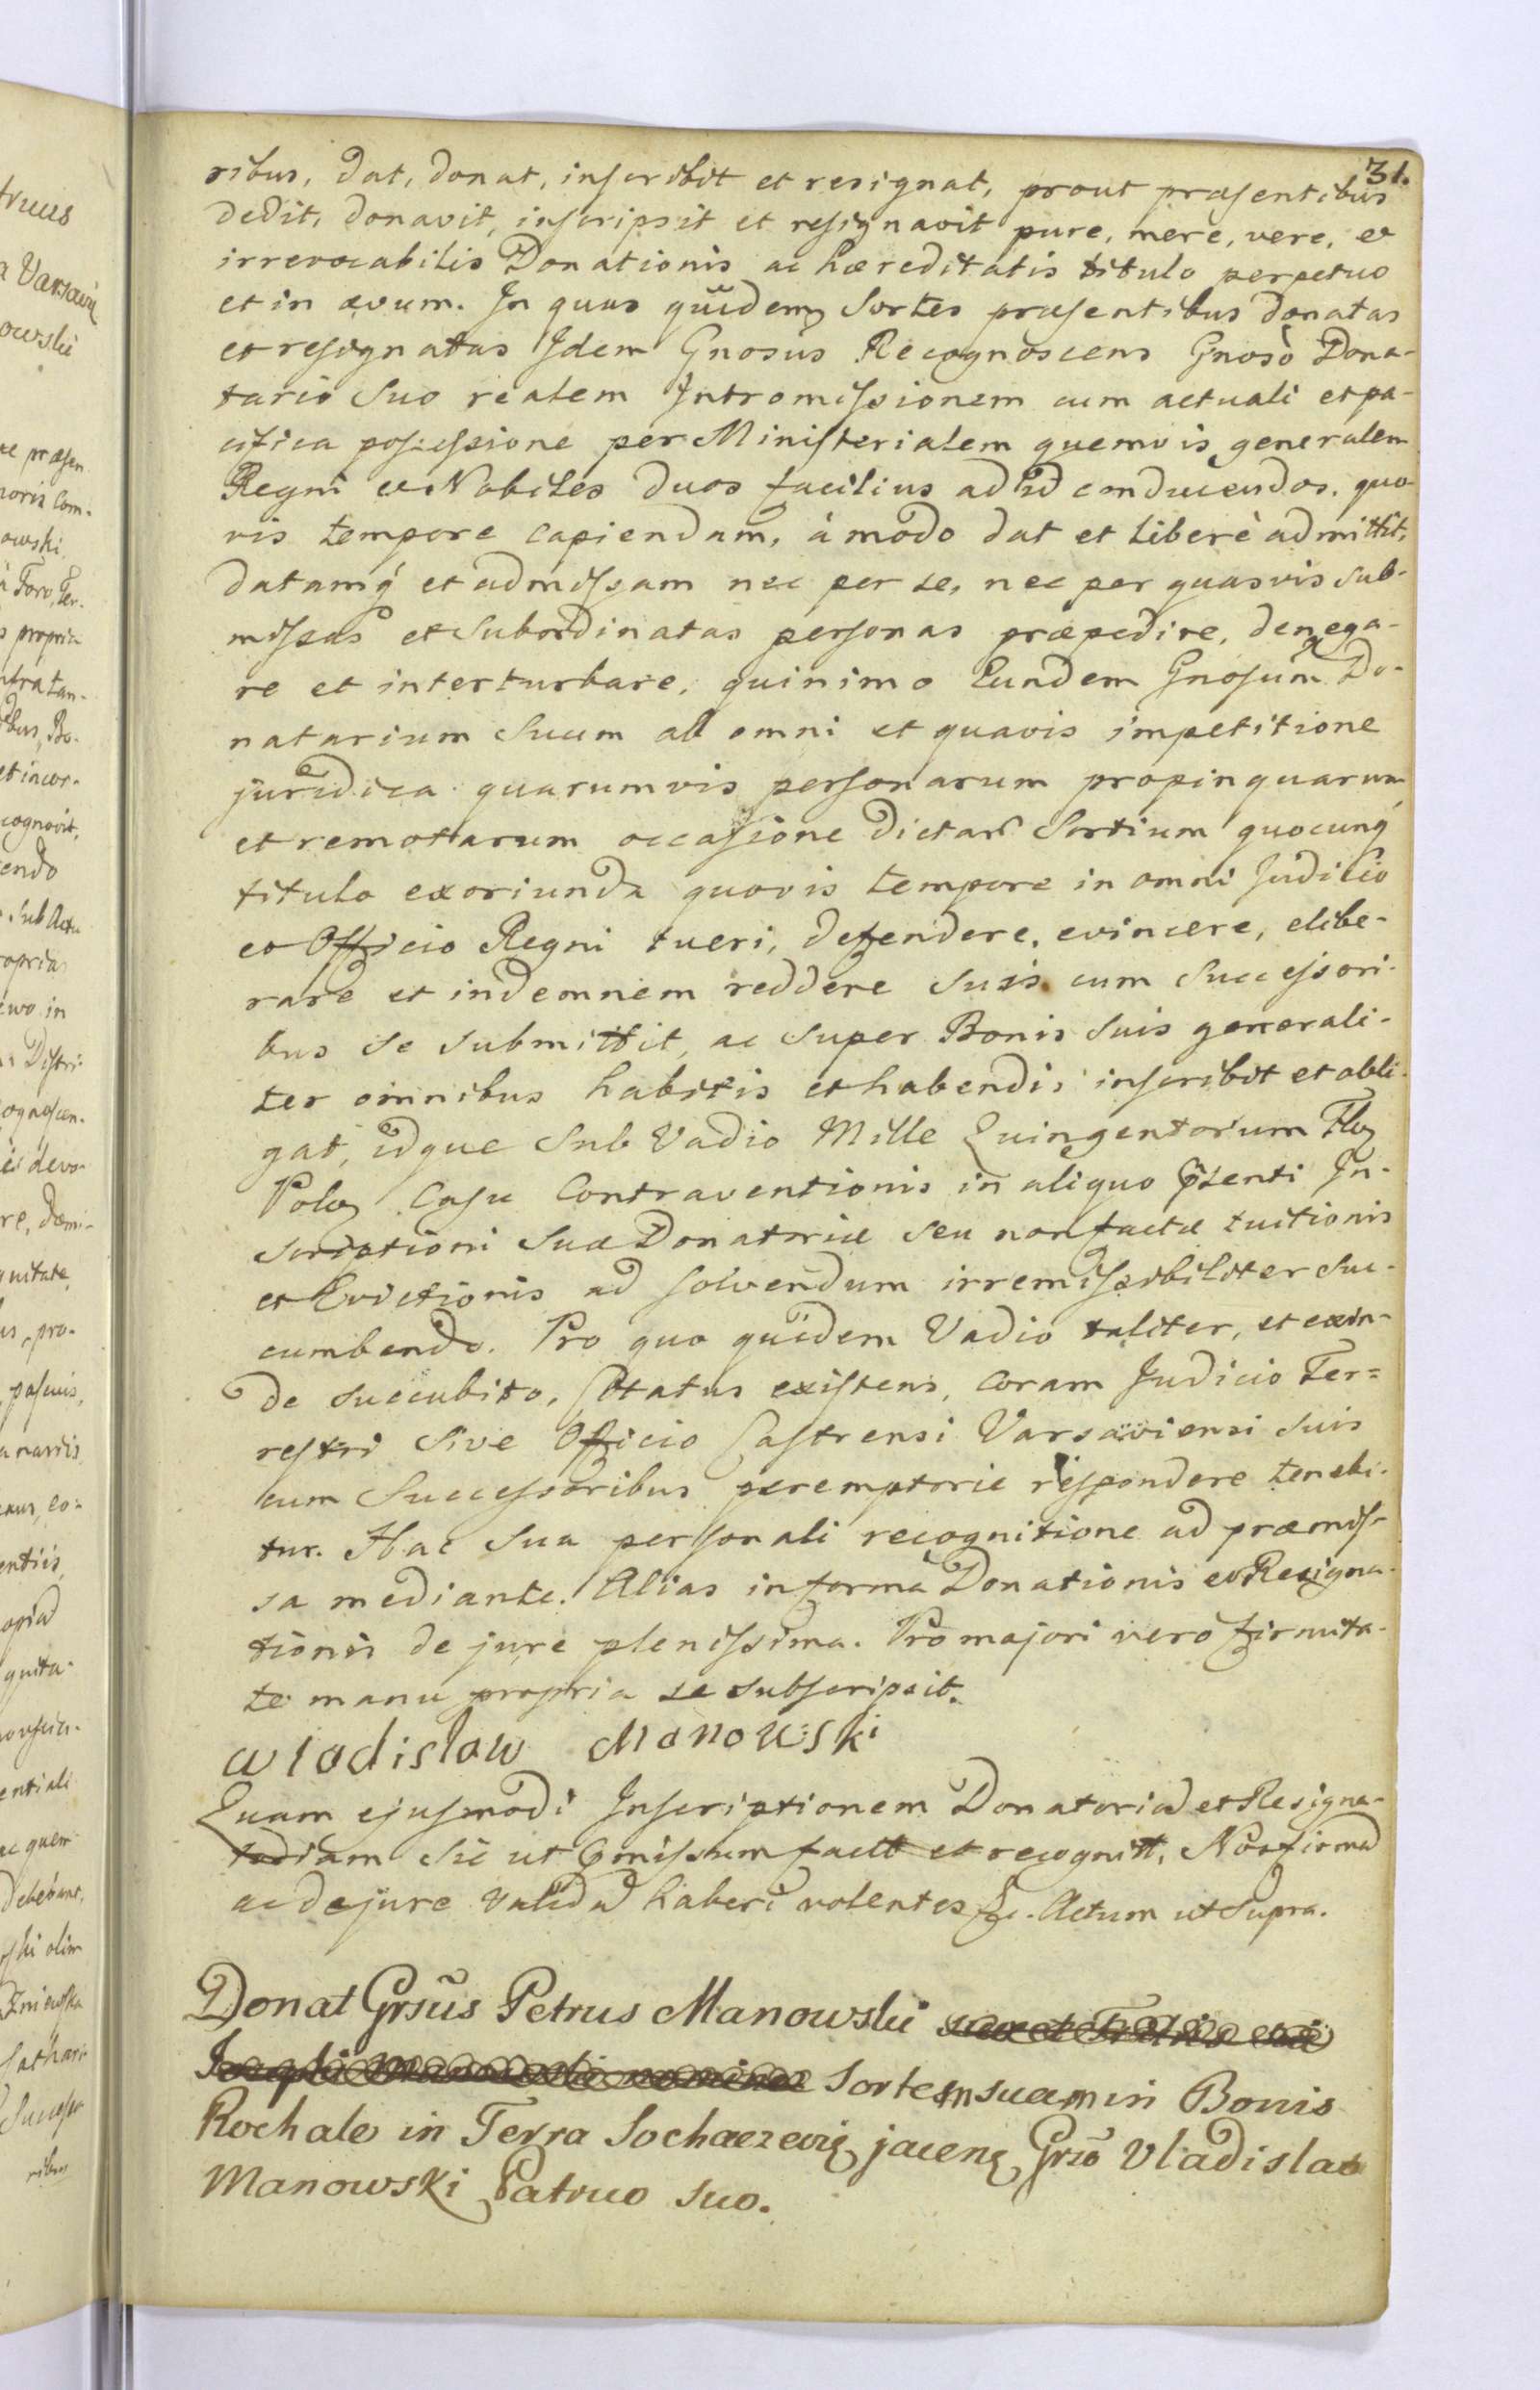 31.
ribus, dat, donat, inscribit et resignat, prout præsentibus
dedit, donavit, inscripsit et resignavit pure, mere, vere, et
irrevocabilis Donationis ac hæreditatis titulo perpetuo
et in ævum. In quas quidem Sortes præsentibus donatas
et resignatas Idem Gnosus Recognoscens Gnoso Dona-
tario Suo realem Intromissionem cum actuali et pa-
cifica possessione per Ministerialem quemvis generalem
Regni et Nobiles duos facilius ad id conducendos, quo-
vis tempore capiendam, à modo dat et liberè admittit,
datamq́ et admissam nec per se, nec per quasvis sub-
missas et Subordinatas personas præpedire, denega-
re et interturbare, quinimo Eundem Gnosum Do-
natarium Suum ab omni et quavis impetitione
juridica quarumvis personarum propinquarum
et remotarum occasione dictar Sortium quocunq́
titulo exoriunda quovis tempore in omni Judicio
et Officio Regni tueri, defendere, evincere, elibe-
rare et indemnem reddere Suis cum Successori-
bus se submittit, ac super Bonis Suis generali-
ter omnibus habitis et habendis inscribit et obli-
gat, idque Sub Vadio Mille Quingentorum Flor
Polon Casu Contraventionis in aliquo pſzenti In-
scriptioni Suæ Donatoriæ seu non factæ tuitionis
et Evictionis ad solvendum irremissibiliter suc-
cumbendo. Pro quo quidem Vadio taliter, et exin-
de succubito, Citatus existens, coram Judicio Ter=
restri Sive Officio Castrensi Varsaviensi suis
cum Successoribus peremptorie respondere tenebi-
tur. Hac Sua personali recognitione ad præmis-
sa mediante. Alias in forma Donationis et Resigna-
tionis de jure plenissima. Pro majori vero firmita-
te manu propria se subscripsit.
wladislaw Manowski
Quam ejusmodi Inscriptionem Donatoria et Resigna-
toriam sic ut pmissum factt et recognitt, Nos firma
ac de jure valida haberi volentes &c. Actum ut Supra.
Donat Grsus Petrus Manowski
Sortem suam in Bonis
Rochale in Terra Sochaczevi jacen Grso Vladislao
Manowski Patruo suo.